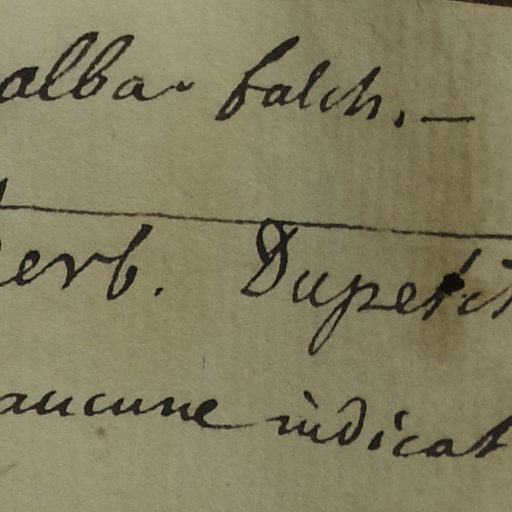 alba balch. —
erb. Dupetit
aucune indicat